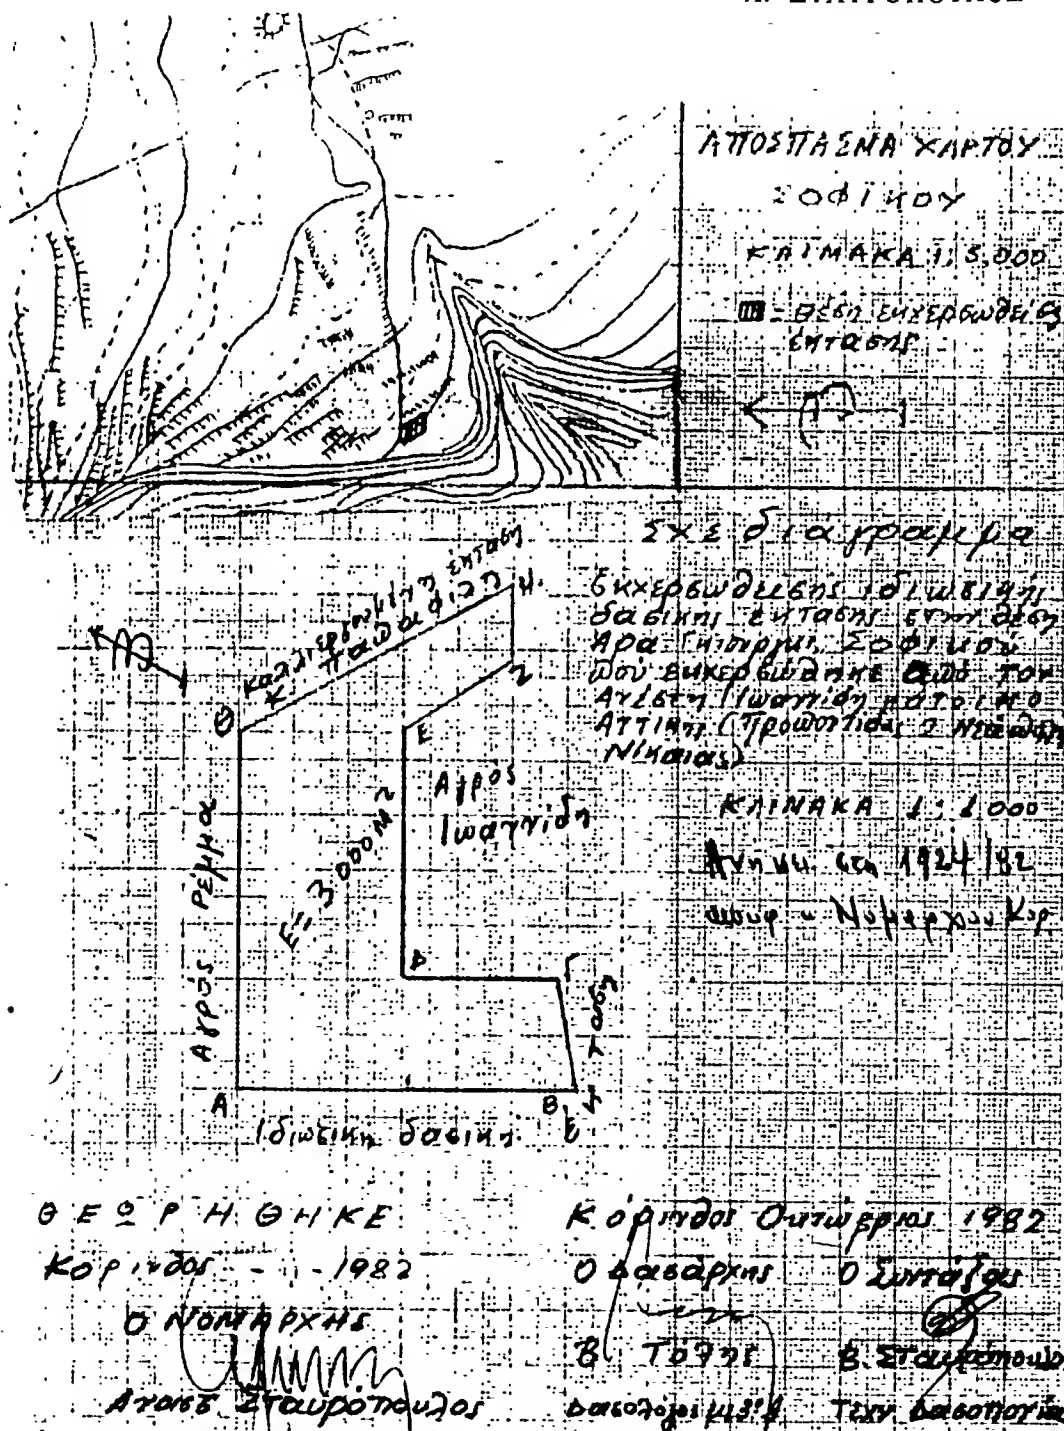 ΑΠΟΣΠΑΣΜΑ ΧΑΡΤΟΥ
ΣΟΦΙΚΟΥ
ΚΛΙΜΑΚΑ 1:5,000
= Θέση εκχερσωθείσης
έκτασης
Σχεδιάγραμμα
Εκχερσωθείσης ιδιωτικής
δασικής έκτασης στην θέση
Αρα Σοφικού
που εκχερσώθηκε από τον
Ανέστη Ιωαννίδη κάτοικο
Αττικής (Προποντίδος 2
Νίκαιας)
ΚΛΙΜΑΚΑ 1:1000
Ανήκει στη 1924/82
Νομάρχου Κορ.
Καλλιεργημένη έκταση
Κ. Παπαφίτη
Η
Ζ
Θ
Ε
Αγρός
Ιωαννίδη
Ε=3000 Μ2
Αγρός Ρέμμα
Δ
Γ
Α
Β
έκταση
Ιδιωτική δασική
ΘΕΩΡΗΘΗΚΕ
Κόρινθος - - 1982
Ο ΝΟΜΑΡΧΗΣ
Αναστ Σταυρόπουλος
Κόρινθος Οκτώβριος 1982
Ο Δασάρχης
Β. Τόλης
Δασολόγος
Ο Συντάξας
Β. Σταυρόπουλο
Τεχν Δασοπονία